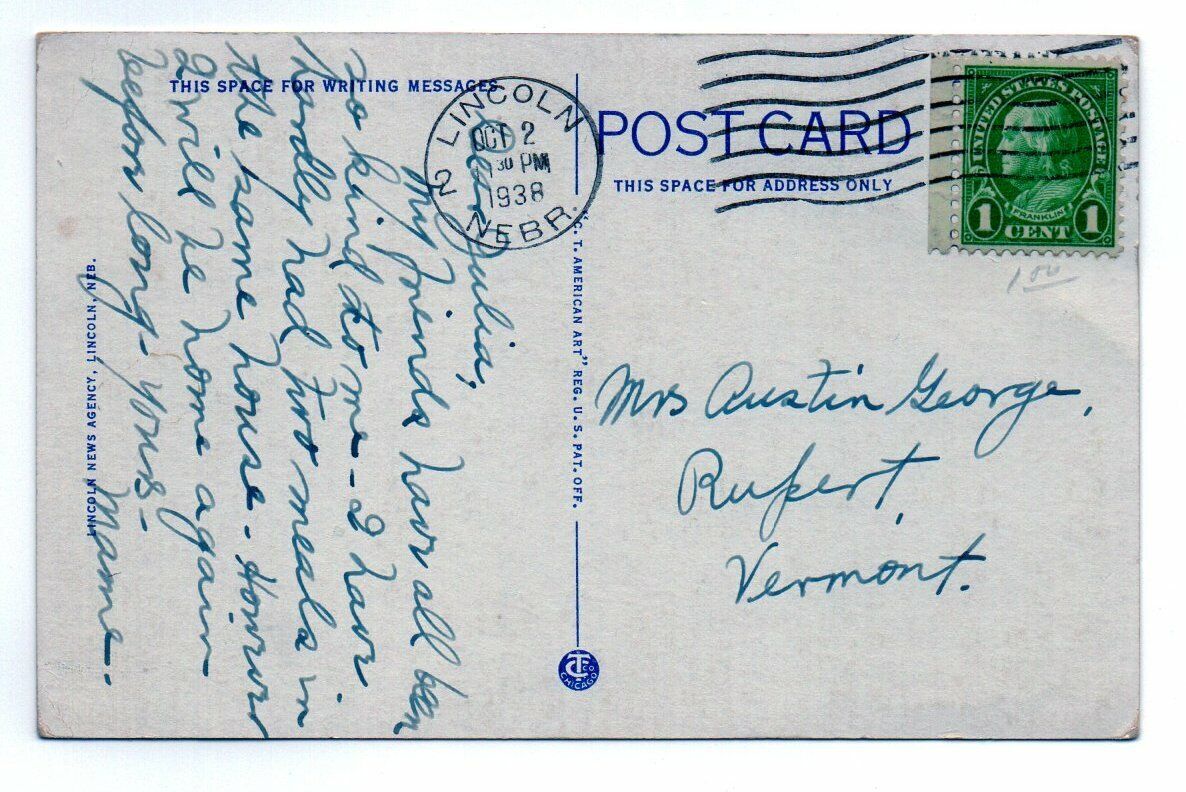 THIS SPACE FOR WRITING MESSAGES
Dear Julia,
My friends have all been
so kind to me - I have
hardly had two meals in
the same house - However
I will be home again
before long - Yours -
Mame -
LINCOLN NEWS AGENCY, LINCOLN, NEB.
LINCOLN
OCT 2
30 PM
1938
NEBR.
2
"C. T. AMERICAN ART" REG. U. S. PAT. OFF.
CT CO
CHICAGO
POST CARD
THIS SPACE FOR ADDRESS ONLY
UNITED STATES POSTAGE
FRANKLIN
1 CENT 1
1 00
Mrs Austin George,
Rupert,
Vermont.